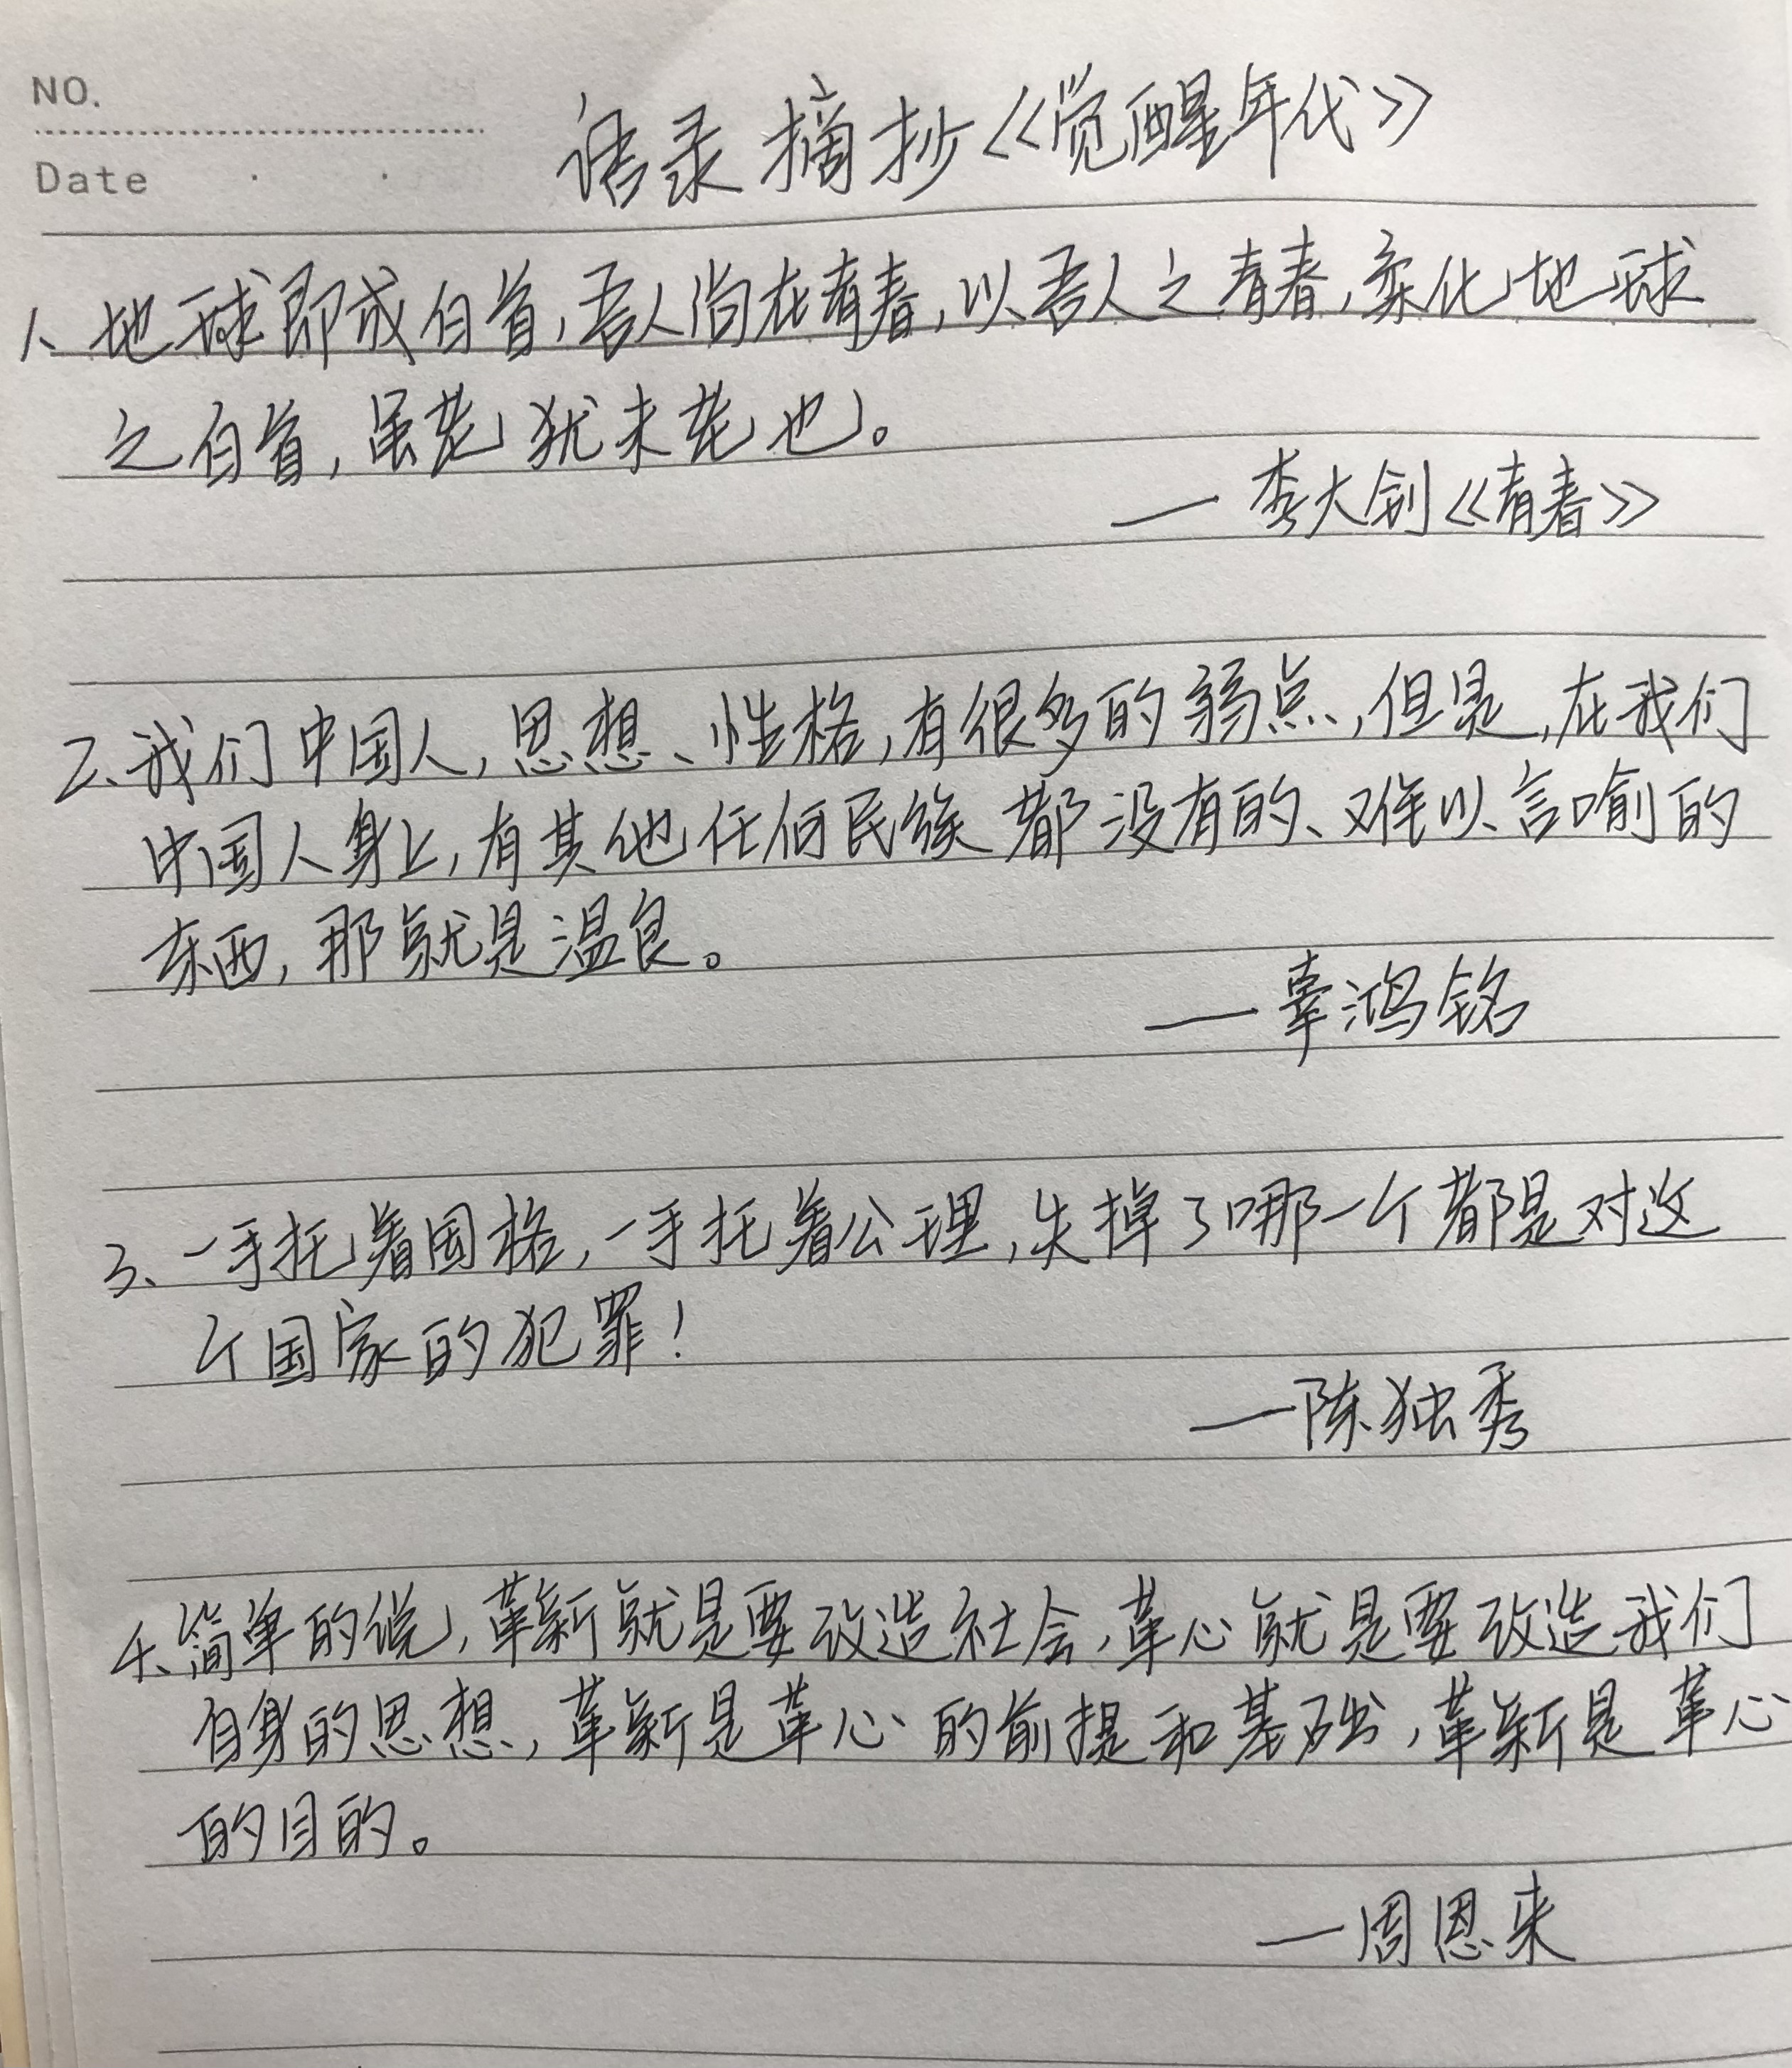 NO.
语录摘抄《觉醒年代》
Date . .
1、地球即成白首,吾人尚在青春,以吾人之青春,柔化地球
之白首,虽老犹未老也。
—李大钊《青春》
2、我们中国人,思想、性格,有很多的弱点,但是,在我们
中国人身上,有其他任何民族都没有的、难以言喻的
东西,那就是温良。
—辜鸿铭
3、一手托着国格,一手托着公理,失掉了哪一个都是对这
个国家的犯罪!
—陈独秀
4、简单的说,革新就是要改造社会,革心就是要改造我们
自身的思想,革新是革心的前提和基础,革新是革心
的目的。
—周恩来